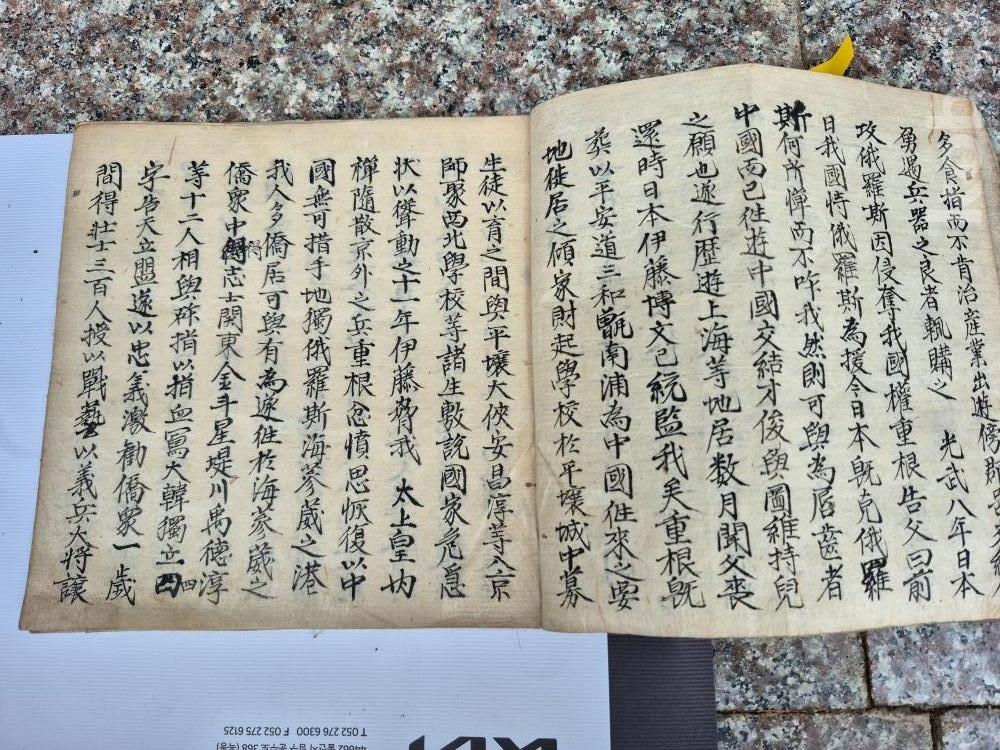 多食指而不肯治産業出遊傍郡
勇遇兵器之良者輒購之 光武八年日本
攻俄羅斯因侵奪我國權重根告父曰前
日我國恃俄羅斯為援今日本既克俄羅
斯何所憚而不咋我然則可與為唇齒者
中國而已徃遊中國交結才俊與圖維持兒
之願也遂行歷遊上海等地居数月聞父喪
還時日本伊藤博文已統監我矣重根既
葬以平安道三和甑南浦為中國徃來之要
地徙居之傾家財起學校於平壤城中募
生徒以育之間與平壤大俠安昌淳等入京
師聚西北學校等諸生敷說國家危急
狀以聳動之十一年伊藤脅我 太上皇内
禪隨散京外之兵重根忿憤思恢復以中
國無可措手地獨俄羅斯海參葳之港
我人多僑居可與有為遂徃於海參葳之
僑衆中得志士關東金斗星堤川禹德淳
等十二人相與斫指以指血寫大韓獨立四
字告天立盟遂以忠義激勸僑衆一歲
間得壯士三百人授以戰藝以義兵大將讓
T 052 276 6300 F 052 275 6125